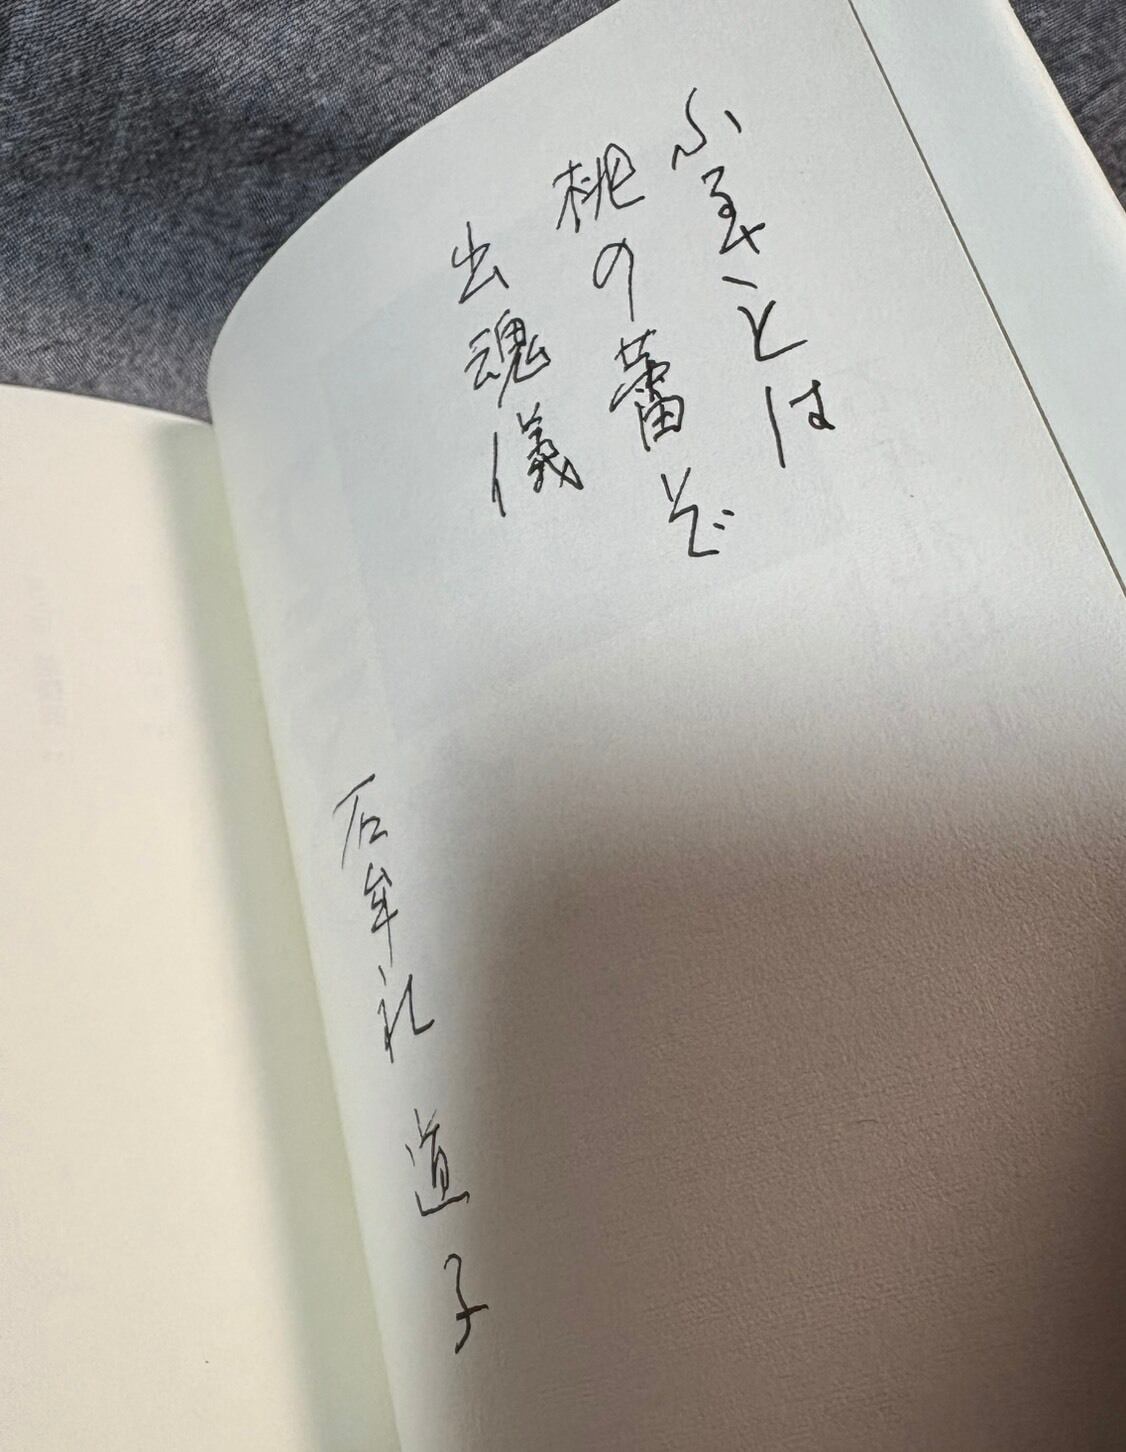 ふるさとは
桃の蕾ぞ
出魂儀
石牟礼 道子